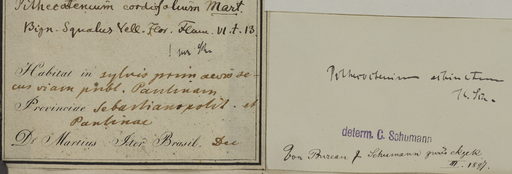 Pithecoctenium cordifolium Mart.
Bign. Squalus Vell. Flor. Flum. VI. t. 13.
Habitat in sylvis primaevis se-
cus viam publ. Paulinam
Provinciae Sebastianopolit. et
Paulinae
Dr Martius Iter Brasil. Dec
Pithecoctenium echinatum
K. Sch.
determ. C. Schumann
Von Bureau & Schumann zurück
III. 1897.